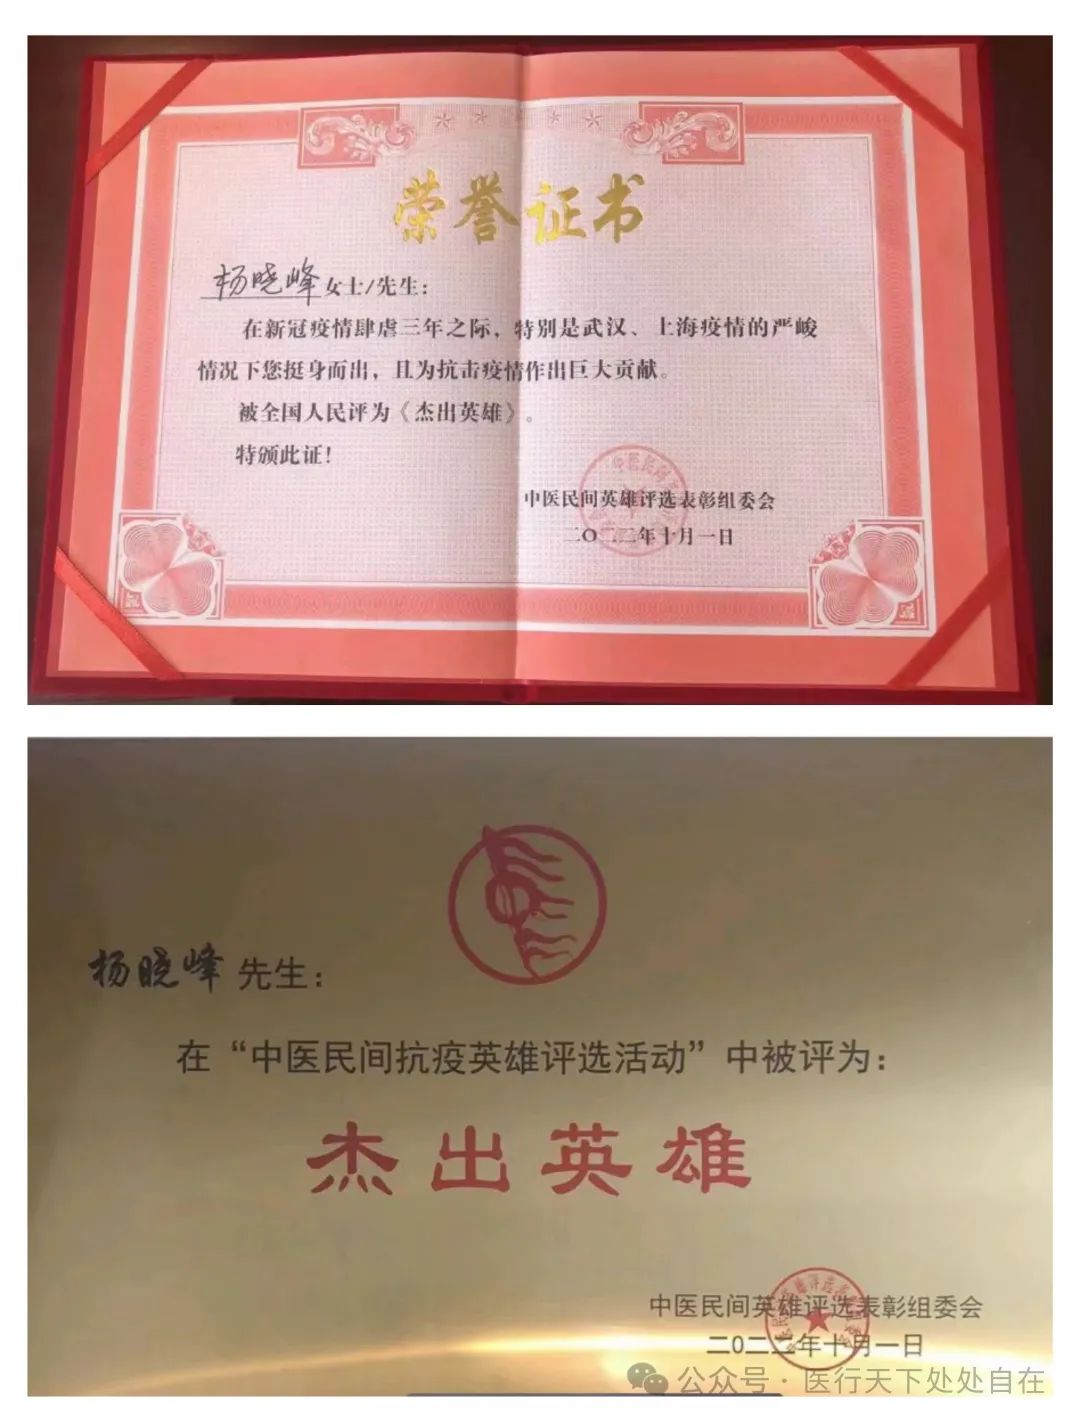 荣誉证书
杨晓峰女士/先生：
在新冠疫情肆虐三年之际，特别是武汉、上海疫情的严峻
情况下您挺身而出，且为抗击疫情作出巨大贡献。
被全国人民评为《杰出英雄》。
特颁此证！
中医民间英雄评选表彰组委会
二〇二二年十月一日
杨晓峰 先生：
在“中医民间抗疫英雄评选活动”中被评为：
杰出英雄
中医民间英雄评选表彰组委会
二〇二二年十月一日
公众号·医行天下处处自在